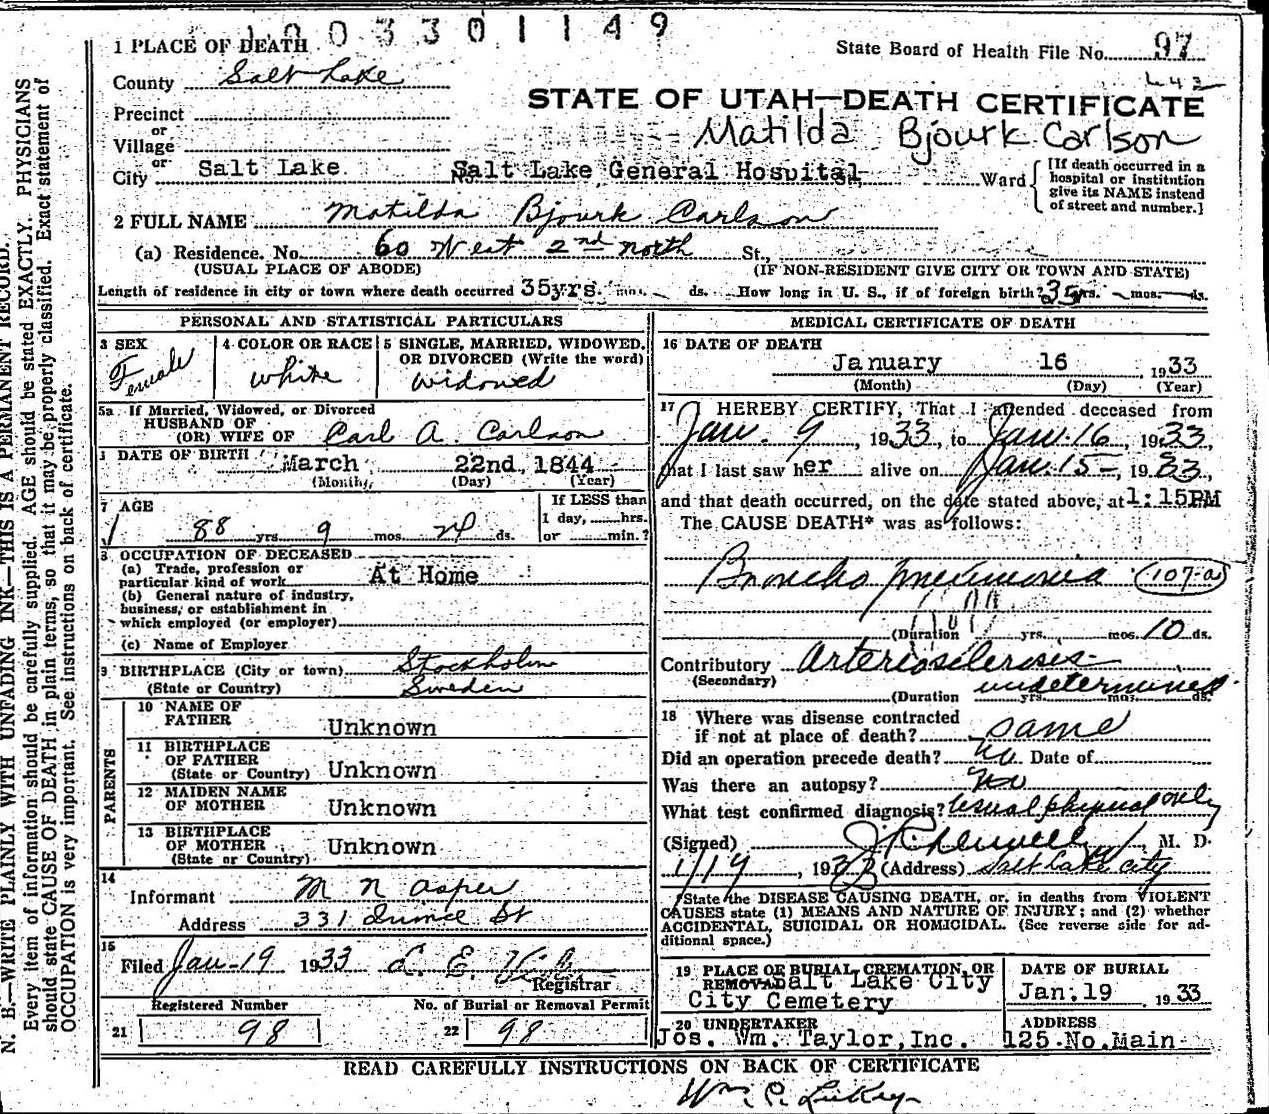 1003301149
1 PLACE OF DEATH
State Board of Health File No. 97
County Salt Lake
L 42
STATE OF UTAH—DEATH CERTIFICATE
Precinct
or
Village
Matilda Bjourk Carlson
or
City Salt Lake No. Salt Lake General Hospital Ward
[If death occurred in a hospital or institution give its NAME instead of street and number.]
2 FULL NAME Matilda Bjourk Carlson
(a) Residence. No. 60 West 2nd north St.,
(USUAL PLACE OF ABODE) (IF NON-RESIDENT GIVE CITY OR TOWN AND STATE)
Length of residence in city or town where death occurred 35yrs. mos. ds. How long in U. S., if of foreign birth? 35yrs. mos. ds.
PERSONAL AND STATISTICAL PARTICULARS
3 SEX
Female
4 COLOR OR RACE
white
5 SINGLE, MARRIED, WIDOWED, OR DIVORCED (Write the word)
widowed
5a If Married, Widowed, or Divorced
HUSBAND OF
(OR) WIFE OF Carl A. Carlson
DATE OF BIRTH March 22nd, 1844
(Month) (Day) (Year)
7 AGE
88 yrs. 9 mos. 24 ds.
If LESS than
1 day, hrs.
or min.?
8 OCCUPATION OF DECEASED
(a) Trade, profession or
particular kind of work At Home
(b) General nature of industry,
business, or establishment in
which employed (or employer)
(c) Name of Employer
9 BIRTHPLACE (City or town) Stockholm
(State or Country) Sweden
PARENTS
10 NAME OF FATHER Unknown
11 BIRTHPLACE OF FATHER (State or Country) Unknown
12 MAIDEN NAME OF MOTHER Unknown
13 BIRTHPLACE OF MOTHER (State or Country) Unknown
14
Informant M N Asper
Address 331 Quince St
15
Filed Jan-19 1933 L. E.
Registrar
Registered Number No. of Burial or Removal Permit
21 98 22 98
MEDICAL CERTIFICATE OF DEATH
16 DATE OF DEATH
January 16 1933
(Month) (Day) (Year)
17 I HEREBY CERTIFY, That I attended deceased from
Jan. 9, 1933, to Jan. 16, 1933,
that I last saw her alive on Jan. 15-, 1933,
and that death occurred, on the date stated above, at 1:15PM
The CAUSE DEATH* was as follows:
Broncho pneumonia (107-a)
(Duration yrs. mos. 10 ds.
Contributory Arteriosclerosis
(Secondary)
undetermined
(Duration yrs. mos. ds.
18 Where was disease contracted
if not at place of death? same
Did an operation precede death? no Date of
Was there an autopsy? no
What test confirmed diagnosis? Usual physical only
(Signed) M. D.
1/19, 1933 (Address) Salt Lake City
State the DISEASE CAUSING DEATH, or, in deaths from VIOLENT
CAUSES state (1) MEANS AND NATURE OF INJURY; and (2) whether
ACCIDENTAL, SUICIDAL OR HOMICIDAL. (See reverse side for ad-
ditional space.)
19 PLACE OF BURIAL CREMATION, OR
REMOVAL Salt Lake City
City Cemetery
DATE OF BURIAL
Jan. 19 1933
20 UNDERTAKER
Jos. Wm. Taylor, Inc.
ADDRESS
125 No. Main
READ CAREFULLY INSTRUCTIONS ON BACK OF CERTIFICATE
Wm. P.
N. B.—WRITE PLAINLY WITH UNFADING INK—THIS IS A PERMANENT RECORD.
Every item of information should be carefully supplied. AGE should be stated EXACTLY. PHYSICIANS
should state CAUSE OF DEATH in plain terms, so that it may be properly classified. Exact statement of
OCCUPATION is very important. See instructions on back of certificate.